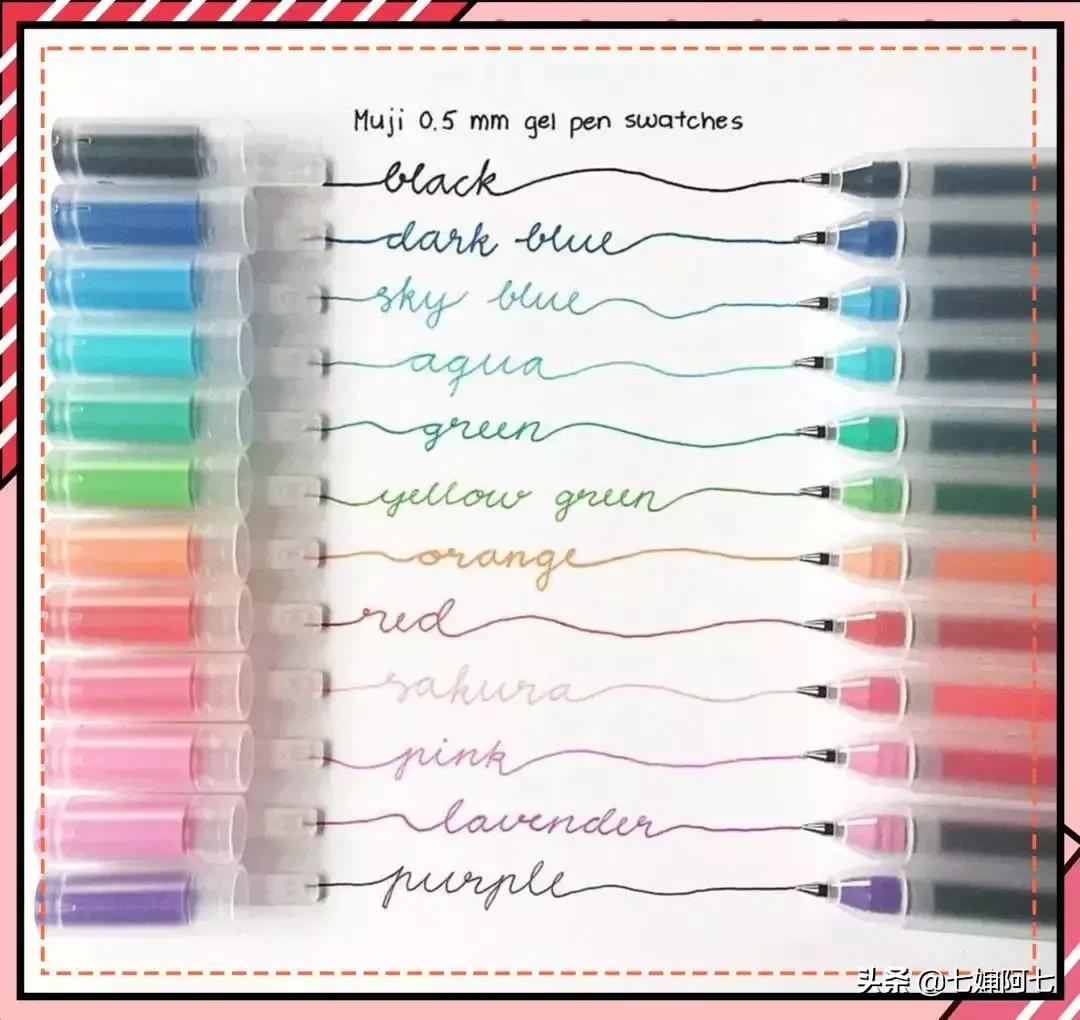 Muji 0.5 mm gel pen swatches
black
dark blue
sky blue
aqua
green
yellow green
orange
red
sakura
pink
lavender
purple
头条 @七婶阿七